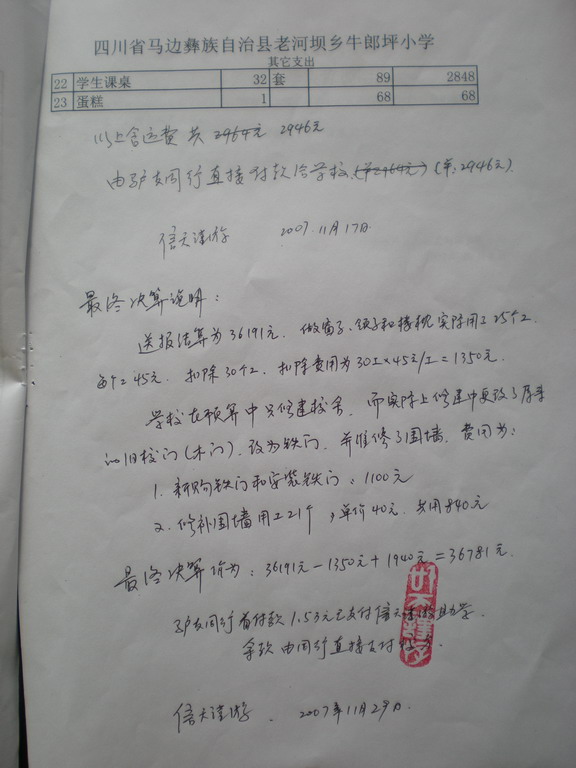 四川省马边彝族自治县老河坝乡牛郎坪小学
其它支出
22 学生课桌 32 套 89 2848
23 蛋糕 1 68 68
以上含运费 共 2964元 2946元
由驴友同行直接付款给学校.(单2964元)(单:2946元).
信天谨游 2007.11月17日
最终决算说明:
送报结算为36191元. 做窗子、领子和椽桷实际用工25个工.
每个工45元. 扣除30个工. 扣除费用为30工×45元/工=1350元.
学校在预算中只修建校舍, 而实际上修建中更改了原来
的旧校门(木门). 改为铁门. 并维修了围墙. 费用为:
1. 新购铁门和安装铁门: 1100元
2. 修补围墙用工21个, 单价40元. 共用840元
最终决算价为: 36191元-1350元+1940元=36781元.
驴友同行首付款1.5万元已支付信天谨游助学.
余款由同行直接支付
信天谨游. 2007年11月29日.